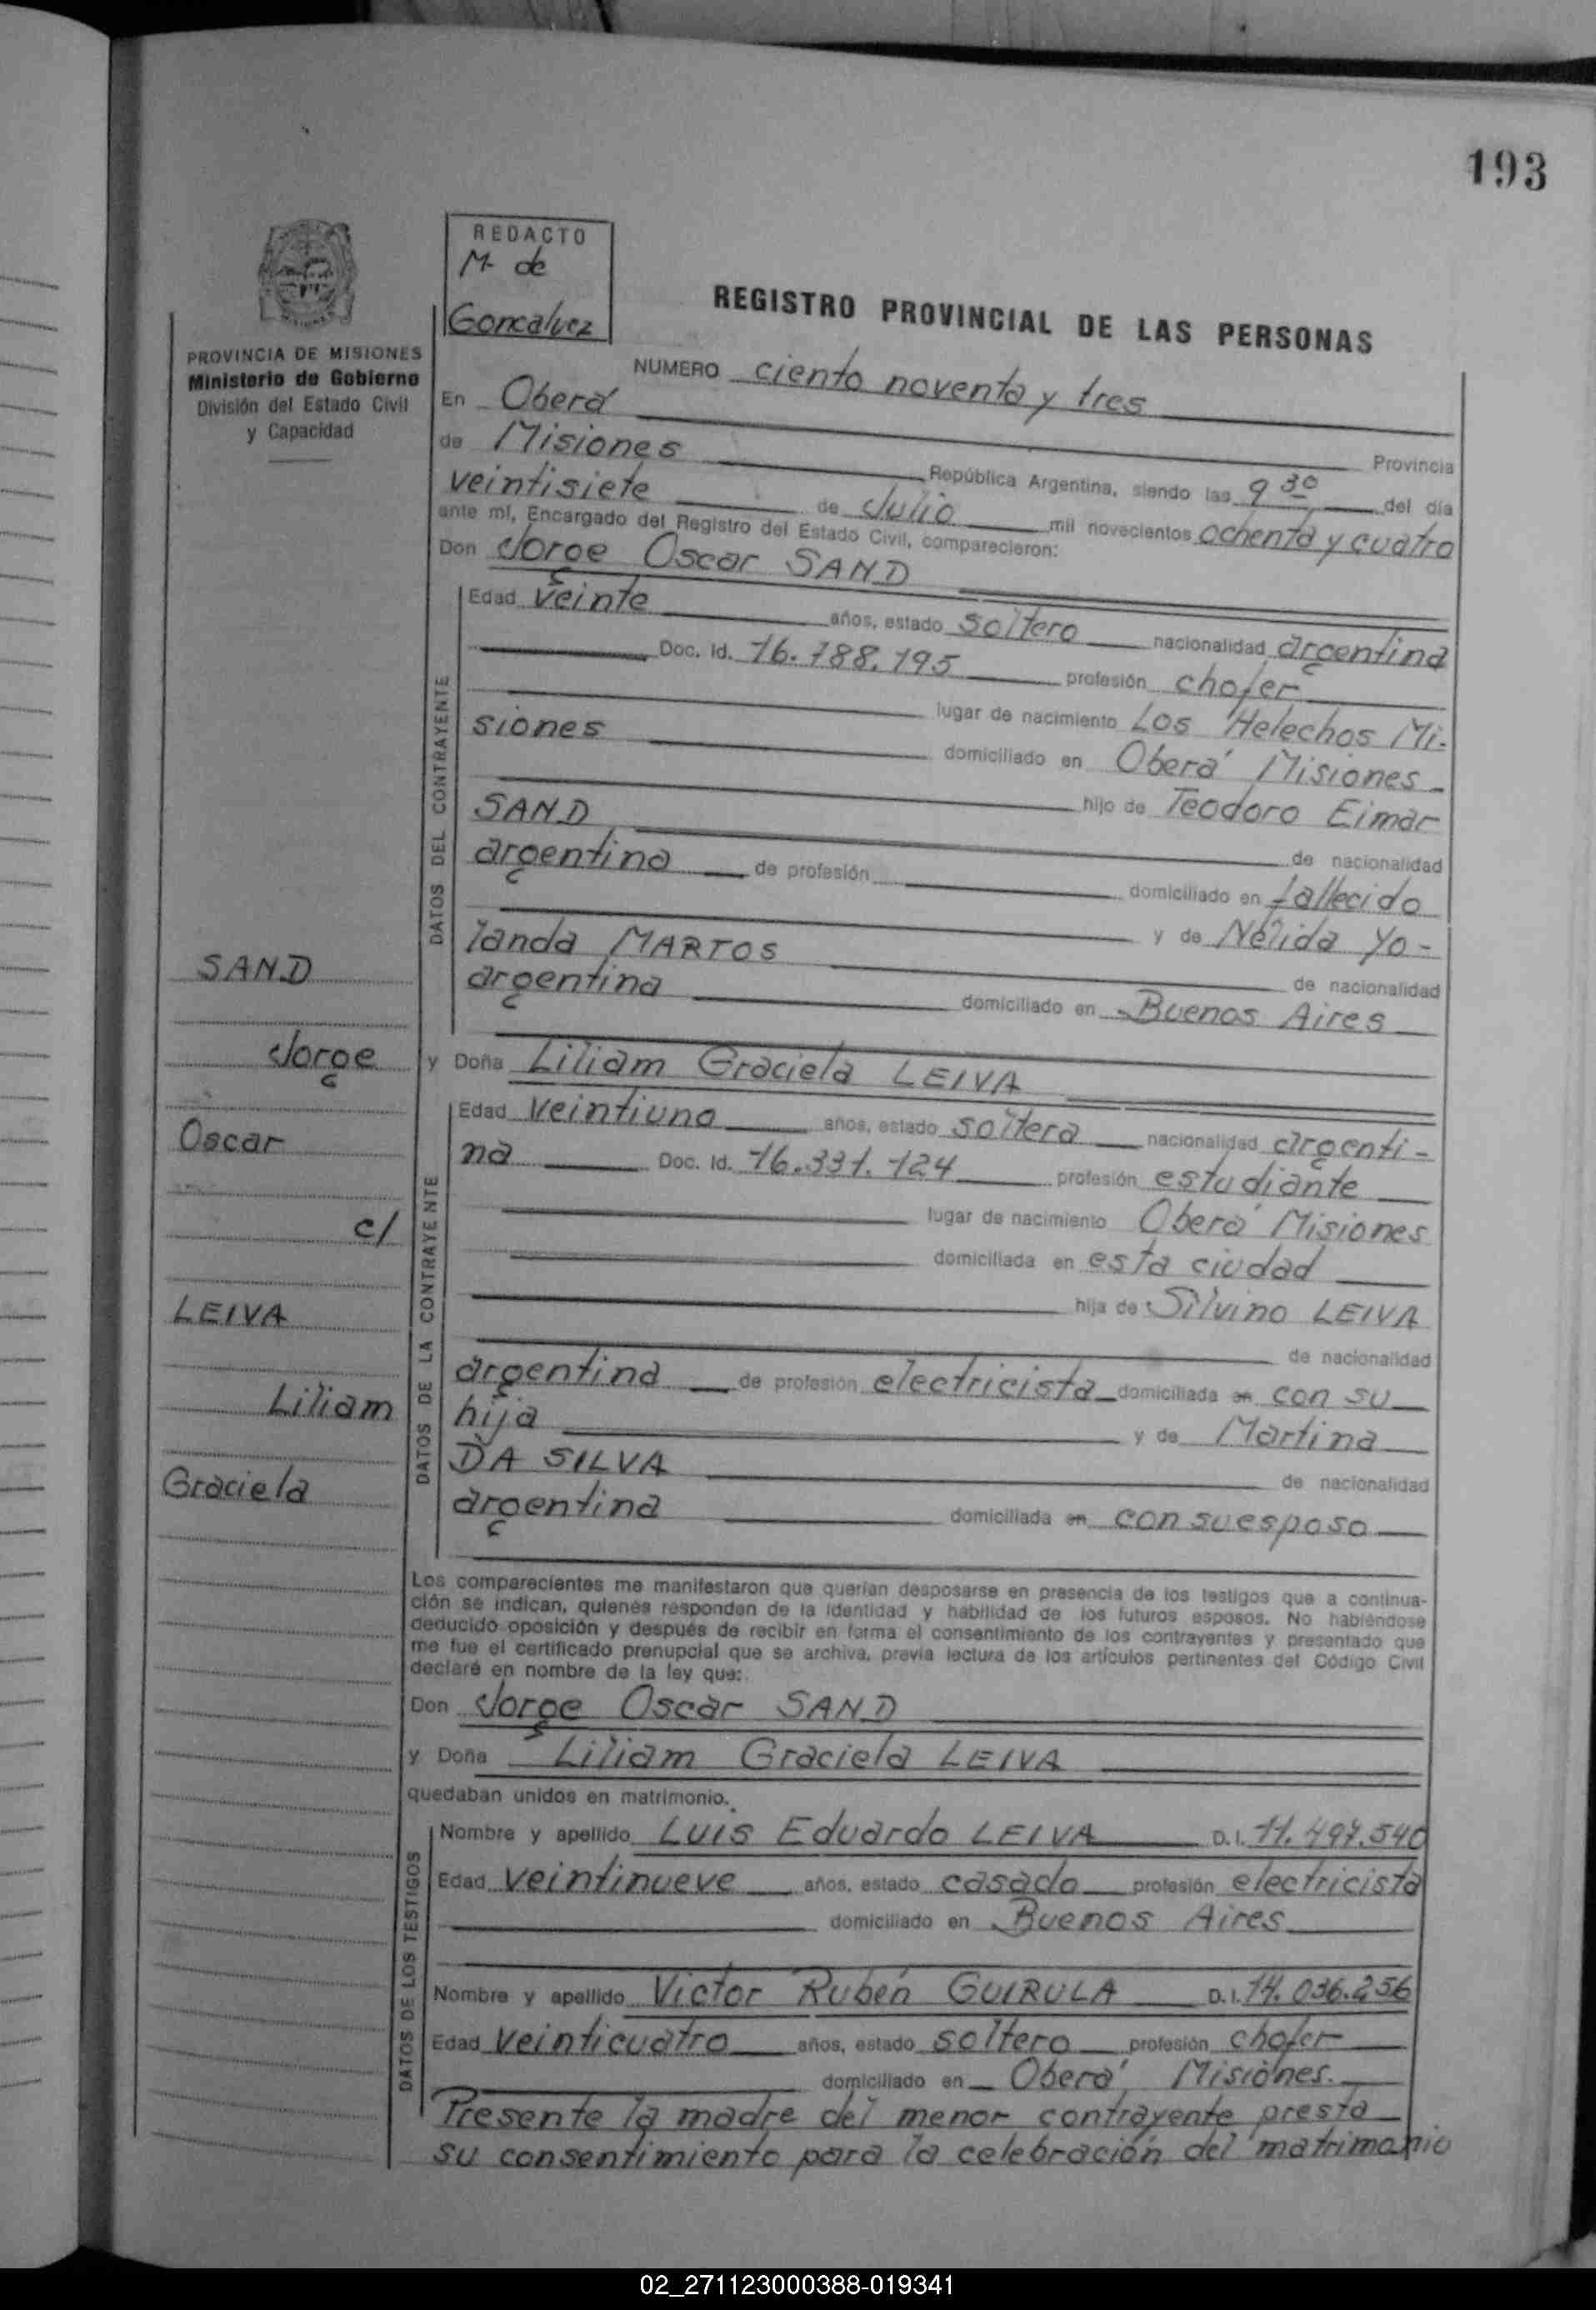 193
REDACTO
M. de
Goncalvez
REGISTRO PROVINCIAL DE LAS PERSONAS
PROVINCIA DE MISIONES
Ministerio de Gobierno
División del Estado Civil
y Capacidad
NUMERO ciento noventa y tres
En Oberá Provincia
de Misiones República Argentina, siendo las 9 30 del día
veintisiete de Julio mil novecientos ochenta y cuatro
ante mí, Encargado del Registro del Estado Civil, comparecieron:
Don Jorge Oscar SAND
DATOS DEL CONTRAYENTE
Edad veinte años, estado soltero nacionalidad argentina
Doc. Id. 16.788.195 profesión chofer
lugar de nacimiento Los Helechos Mi-
siones domiciliado en Oberá Misiones
hijo de Teodoro Eimar
SAND de nacionalidad
argentina de profesión domiciliado en fallecido
y de Nélida Yo-
landa MARTOS de nacionalidad
argentina domiciliado en Buenos Aires
SAND
Jorge
Oscar
c/
LEIVA
Liliam
Graciela
y Doña Liliam Graciela LEIVA
DATOS DE LA CONTRAYENTE
Edad veintiuno años, estado soltera nacionalidad argenti-
na Doc. Id. 16.331.124 profesión estudiante
lugar de nacimiento Oberá Misiones
domiciliada en esta ciudad
hija de Silvino LEIVA
de nacionalidad
argentina de profesión electricista domiciliada en con su
hija y de Martina
DA SILVA de nacionalidad
argentina domiciliada en con su esposo
Los comparecientes me manifestaron que querían desposarse en presencia de los testigos que a continua-
ción se indican, quienes responden de la identidad y habilidad de los futuros esposos. No habiéndose
deducido oposición y después de recibir en forma el consentimiento de los contrayentes y presentado que
me fue el certificado prenupcial que se archiva, previa lectura de los artículos pertinentes del Código Civil
declaré en nombre de la ley que:
Don Jorge Oscar SAND
y Doña Liliam Graciela LEIVA
quedaban unidos en matrimonio.
DATOS DE LOS TESTIGOS
Nombre y apellido Luis Eduardo LEIVA D.I. 11.497.540
Edad veintinueve años, estado casado profesión electricista
domiciliado en Buenos Aires
Nombre y apellido Victor Rubén GUIRULA D.I. 14.036.256
Edad veinticuatro años, estado soltero profesión chofer
domiciliado en Oberá Misiones.
Presente la madre del menor contrayente presta
su consentimiento para la celebración del matrimonio
02_271123000388-019341